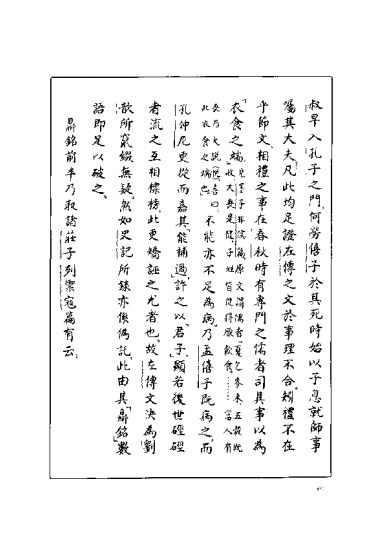 叔早入孔子之門,何勞僖子於其死時始以子息就師事
囑其大夫?凡此均足證在傳之文於事理不合。矧禮不在
乎節文,相禮之事在春秋時有專門之儒者司其事以為
衣食之
不能亦不足為病。乃孟僖子既病之,而
孔仲尼更從而嘉其「能補過」,許之以「君子」,顯若後世硜硜
者流之互相標榜,此更矯誣之尤者也。故左傳文決為劉
歆所竄綴無疑。然如史記所錄亦係偽託,此由其「鼎銘」數
語即足以破之。
鼎銘前半乃取諸莊子列禦寇篇,有云: